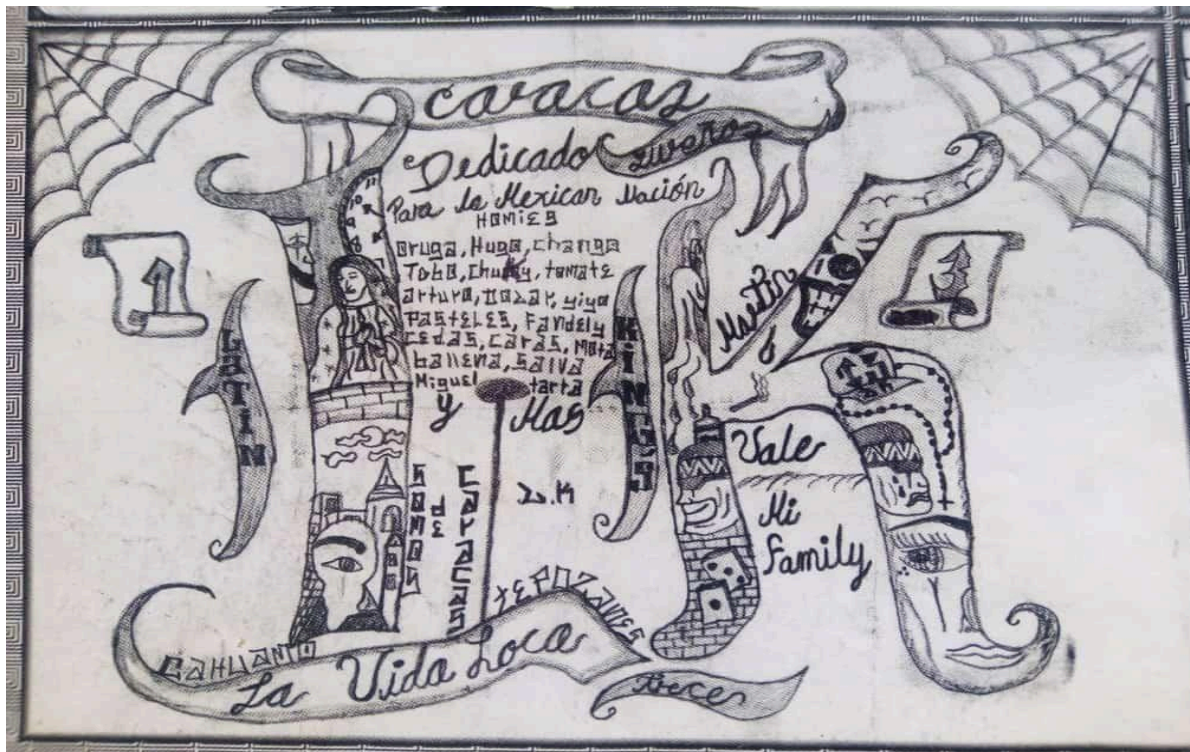 caracas
Dedicado
sureños
Para la Mexican Nación
HOMIES
oruga, Hugo, changa
Tobo, Chuky, tomate
arturo, Dozar, yiyo
PASTELES, Fandely
cedas, caras, Mota
ballena, Salva
Miguel tarta
y Mas
1
3
LATIN
KINGS
Martin
Vale
Mi
Family
20.14
SOMOS
de
CARACAS
La Vida Loca
Trece